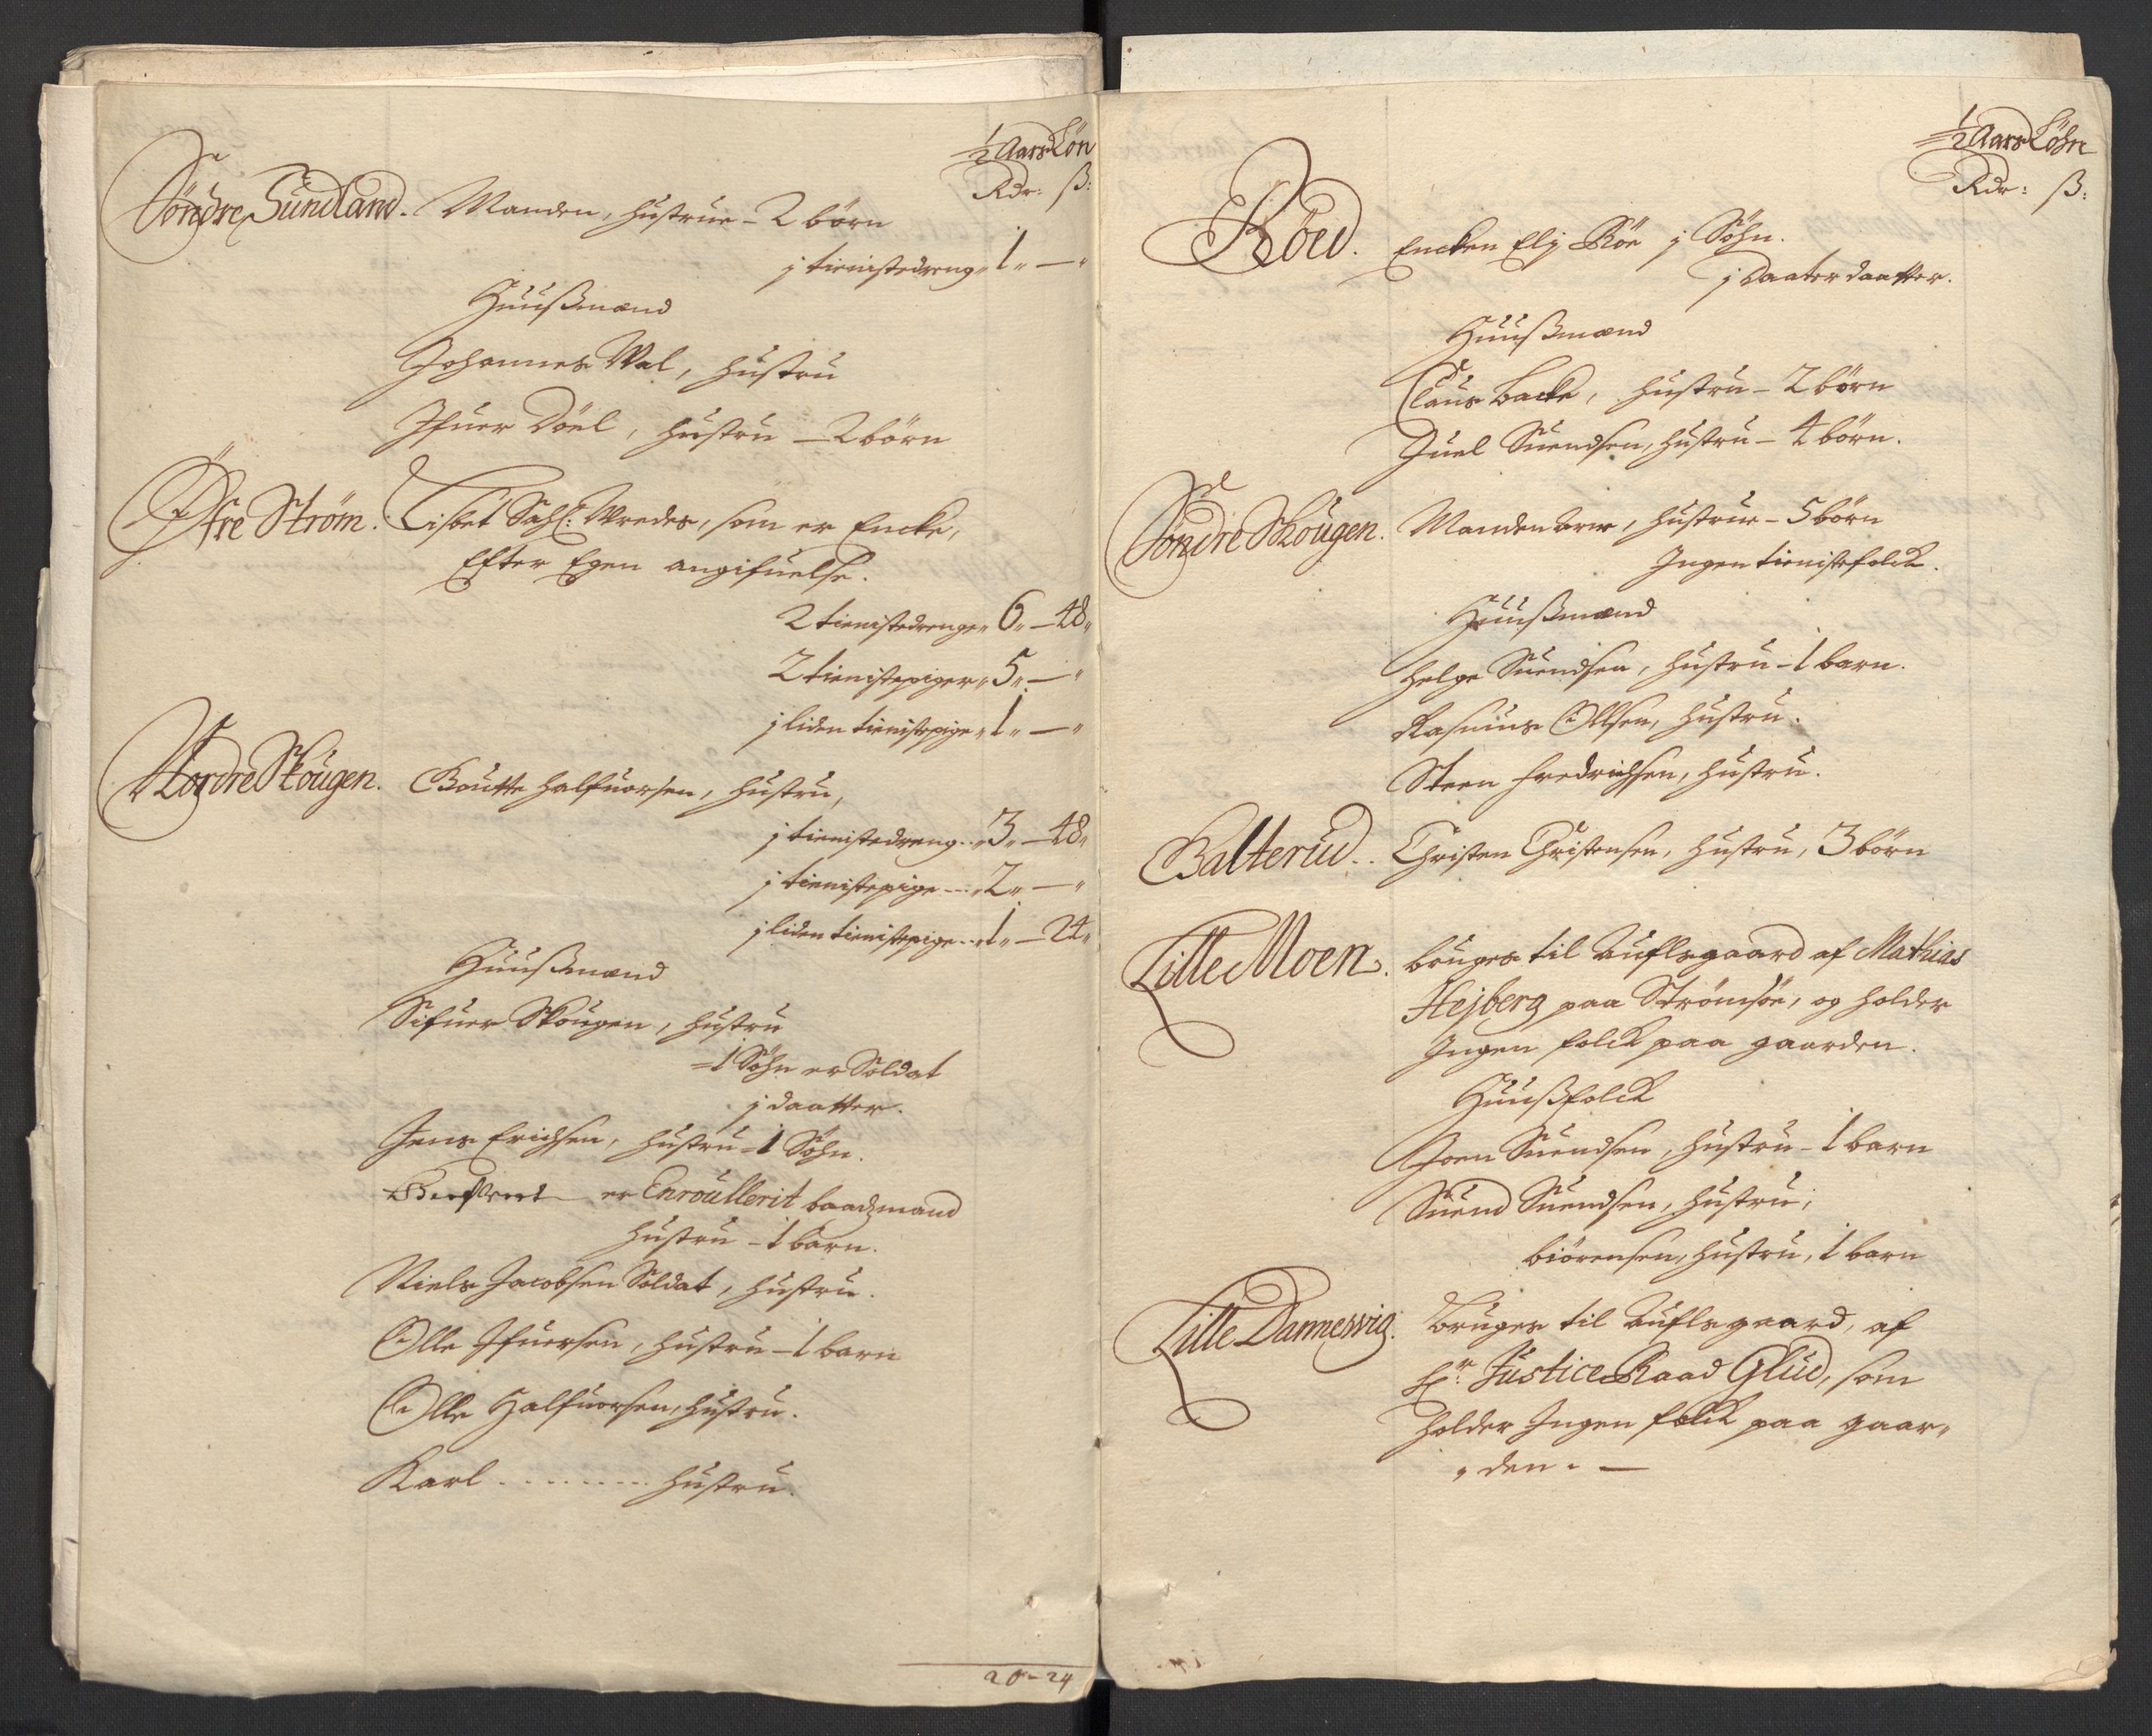 ½ Aars Løn
Rdr: ß:
Söndre Sundland. Manden, hustrue - 2 börn
j tienistedreng " 1 " — "
Huußmænd
Johannes Wal, hustru
Ifuer Döel, hustru - 2 börn
Öfre Ström. Lisbet Sahl: Wredes, som er Encke,
Efter Egen angifuelse.
2 tienistedrenge " 6 " — 48 "
2 tienistepiger " 5 " — "
j liden tienistepige " 1 " — "
Nordre Skougen. Goutte Halfuorsen, hustru,
j tienistedreng .. " 3 " — 48 "
j tienistepige --- " 2 " — "
j liden tienistepige .. " 1 " — 24 "
Huußmænd
Sifuer Skougen, hustru
- 1 Söhn er Soldat
j daatter.
Jens Erichsen, hustru - 1 Söhn.
er Enroullerit baadzmand
hustru - 1 barn.
Niels Jacobsen Soldat, hustru.
Olle Ifuersen, hustru - 1 barn
Olle Halfuorsen, hustru.
Karl ......... hustru.
20 - 24
½ Aars Löhn
Rdr: ß:
Röed. Encken Elj Röe j Söhn.
j Daater daatter.
Huußmænd
Claus Backe, hustru - 2 börn
Juel Suendsen, hustru - 4 börn.
Söndre Skougen. Manden, hustrue - 5 börn
Ingen tienistefolck.
Huußmænd
Helge Suendsen, hustru - 1 barn.
Rasmus Ollsen, hustru.
Steen Fredrichsen, hustru.
Balterud.. Christen Christensen, hustru, 3 börn
Lille Moen. bruges til Auflsgaard af Mathias
Hejberg paa Strömsöe, og holder
Ingen folck paa gaarden.
Huußfolck
Joen Suendsen, hustru - 1 barn
Suend Suendsen, hustru,
biörensen, hustru, 1 barn
Lille Dannewig. bruges til Auflsgaard, af
Hr: Justice Raad Glud, som
holder Ingen folck paa gaar„
„den. —